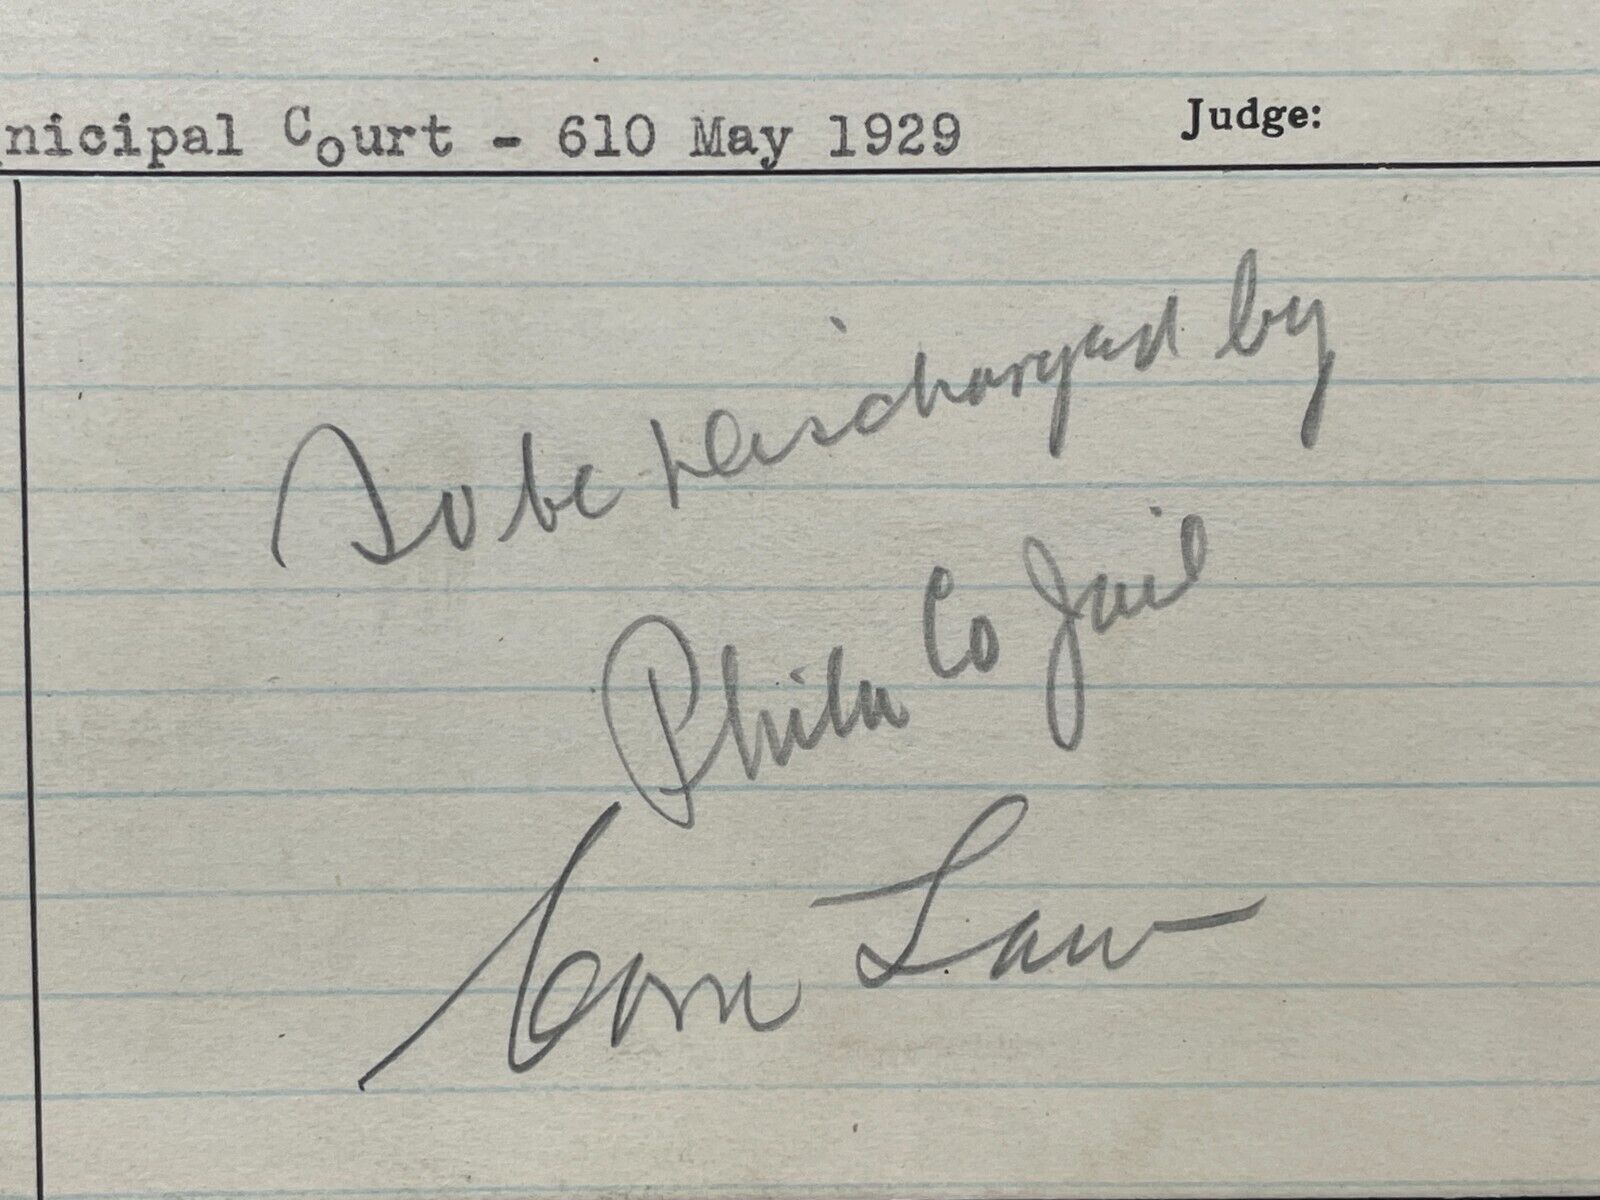 nicipal Court - 610 May 1929 Judge:
To be discharged by
Phila Co Jail
Com Law